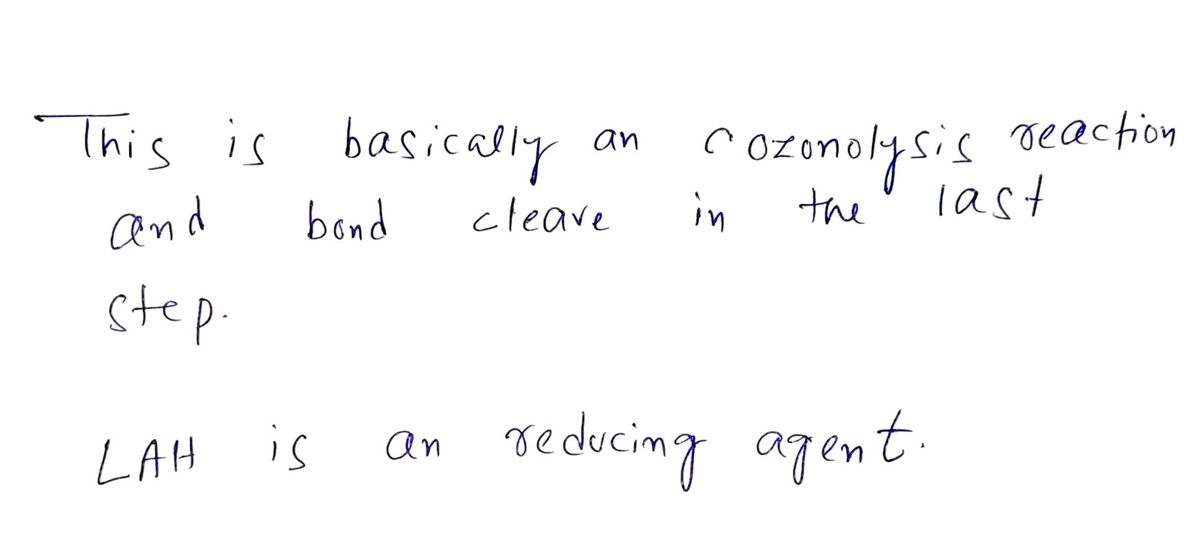 This is basically an ozonolysis reaction
and bond cleave in the last
step.
LAH is an reducing agent.